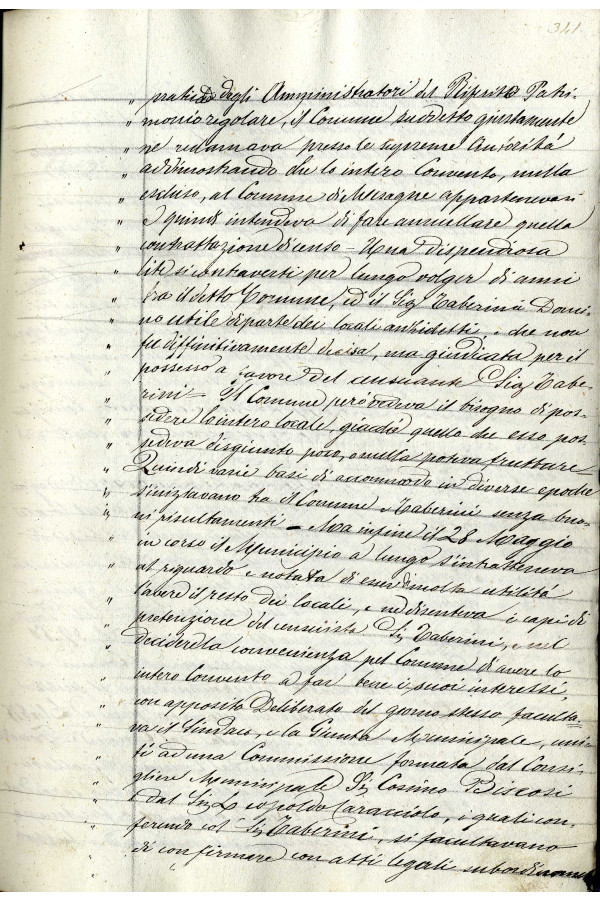 341
" pratica degli Amministratori del Riposto Patri-
" monio regolare, il Comune suddetto giustamente
" ne reclamava presso le supreme Autorità
" addimostrando che lo intero Convento, nulla
" escluso, al Comune di Mesagne appartenevasi
" e quindi intendeva di fare annullare quella
" contrattazione di censo = Una dispendiosa
" lite si contraverti per lungo volger di anni
" tra il detto Comune, ed il Sig Taberini Domi-
" no utile di parte dei locali anzidetti, che non
" fu diffinitivamente decisa, ma giudicata per il
" possesso a favore del censuante Sig Tabe-
" rini = Il Comune però vedeva il bisogno di pos-
" sedere lo intero locale, giacchè quello che esso pos-
" sedeva disgiunto poco, o nulla poteva fruttare
" Quindi varie basi di accommodo in diverse epoche
" s'iniziavano tra il Comune e Taberini senza buo-
" ni risultamenti = Ma infine il 28 Maggio
" in corso il Municipio a lungo s'intratteneva
" al riguardo e notava di essere di molta utilità
" l'avere il resto dei locali, e ne discuteva i capi di
" pretenzione del censuista Sig Taberini, e nel
" decidere la convenienza pel Comune di avere lo
" intero Convento a far bene i suoi interessi
" con apposito Deliberato del giorno stesso faculta-
" va il Sindaco, e la Giunta Municipale, uni-
" ti ad una Commissione formata dal Consi-
" gliere Municipale Sig Cosimo Biscosi
" e dal Sig Leopoldo Caracciolo, i quali con-
" ferendo col Sig Taberini, si facultavano
" di confirmare con atti legali